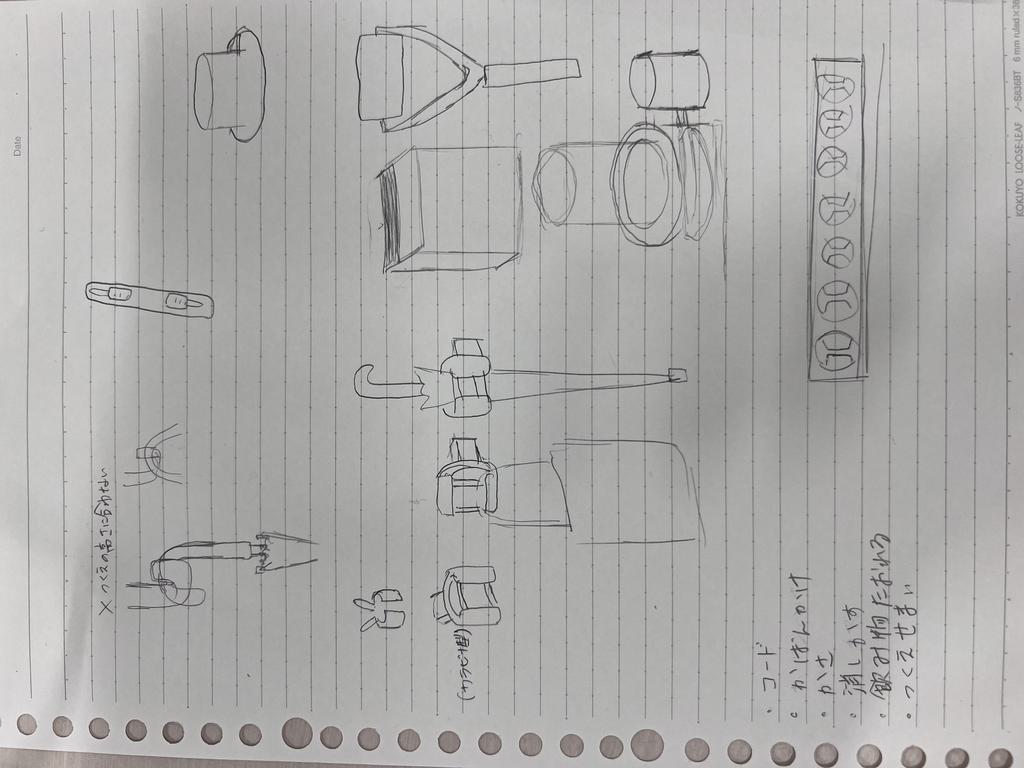 Date
× つくえの高さに合わない
・コード
・かばんかけ
・かさ
・消しかす
・飲み物たおれる
・つくえせまい
KOKUYO LOOSE-LEAF ノ-S836BT 6 mm ruled x 36